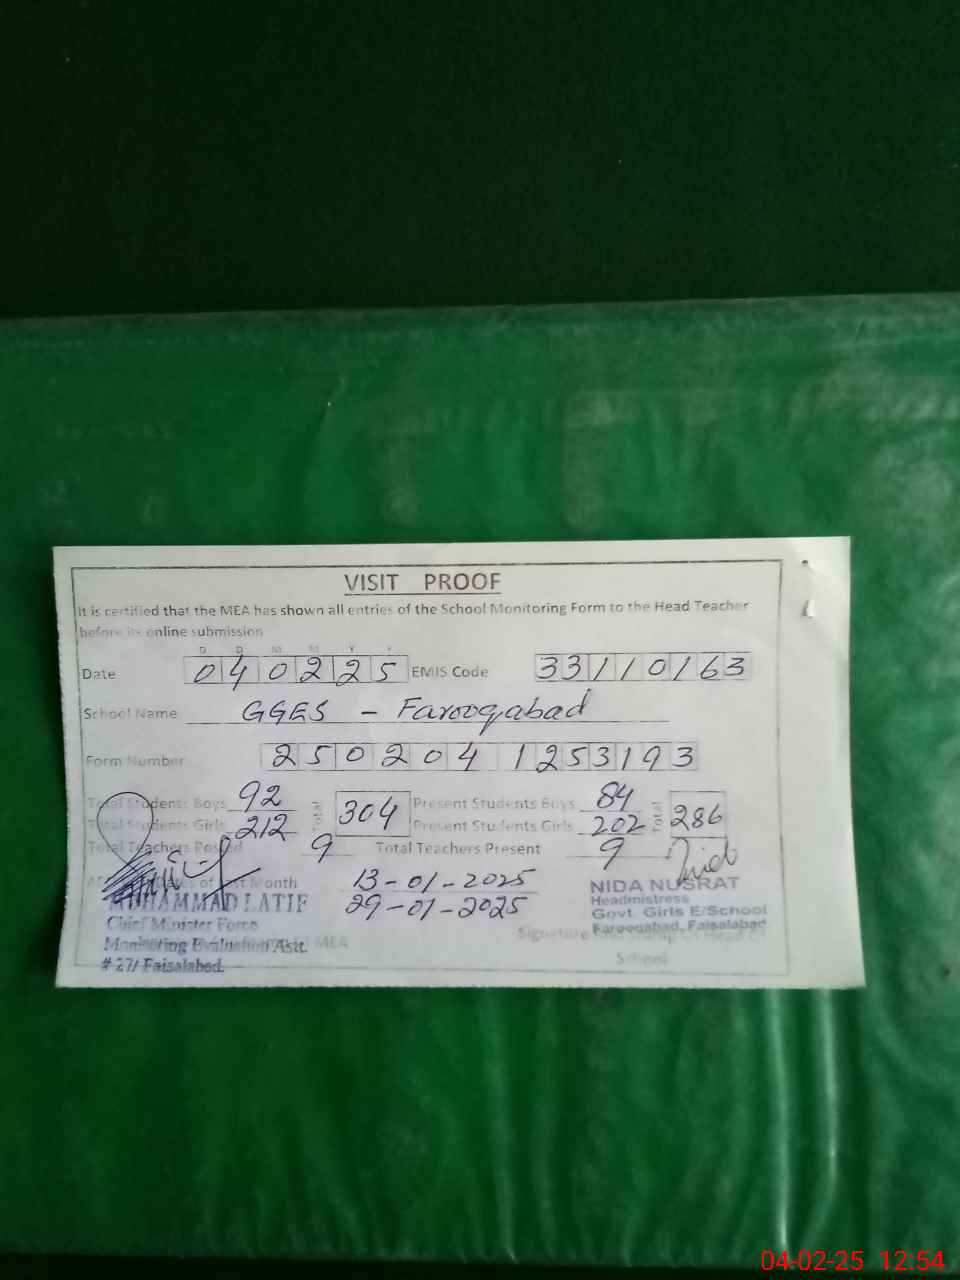 VISIT PROOF
It is certified that the MEA has shown all entries of the School Monitoring Form to the Head Teacher
before its online submission
D D M M Y Y
Date 040225 EMIS Code 33110163
School Name GGES - Farooqabad
Form Number 250204 1253193
Total Students Boys 92 Total 304 Present Students Boys 84 Total 286
Total Students Girls 212 Present Students Girls 202
Total Teachers Posted 9 Total Teachers Present 9
of Last Month 13-01-2025
29-01-2025
MUHAMMAD LATIF
Chief Minister Force
Monitoring Evaluation Asit. MEA
# 27/ Faisalabad.
NIDA NUSRAT
Headmistress
Govt. Girls E/School
Farooqabad, Faisalabad
Signature
School
04-02-25 12:54